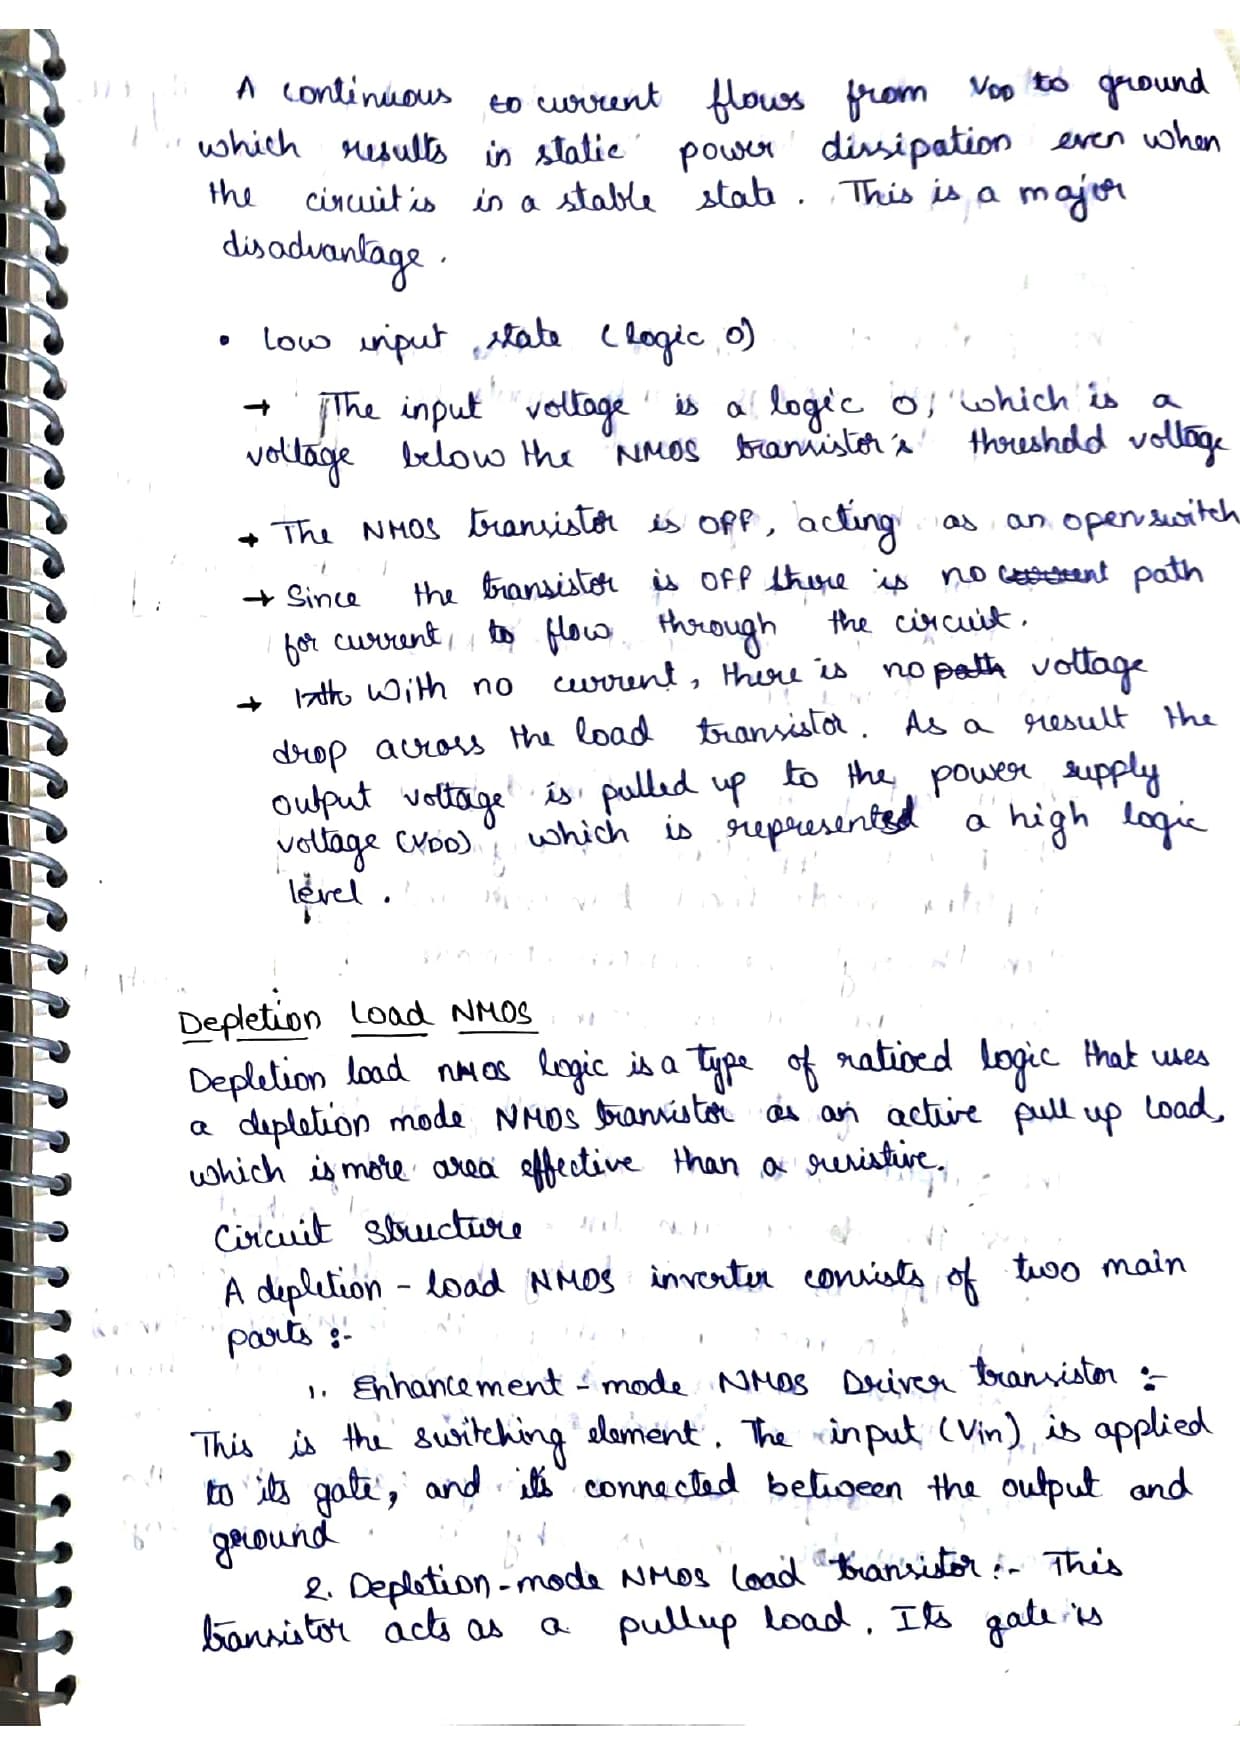 A continuous to current flows from VDD to ground
which results in static power dissipation even when
the circuit is in a stable state. This is a major
disadvantage.
• Low input state (logic 0)
→ The input voltage is a logic 0, which is a
voltage below the NMOS transistor's threshold voltage
→ The NMOS transistor is OFF, acting as an open switch
→ Since the transistor is OFF there is no current path
for current to flow through the circuit.
→ With no current, there is no path voltage
drop across the load transistor. As a result the
output voltage is pulled up to the power supply
voltage (VDD), which is represented a high logic
level.
Depletion Load NMOS
Depletion load nMOS logic is a type of ratioed logic that uses
a depletion mode NMOS transistor as an active pull up load,
which is more area effective than a resistive.
Circuit structure
A depletion - load NMOS inverter consists of two main
parts :-
1. Enhancement - mode NMOS Driver transistor :-
This is the switching element. The input (Vin) is applied
to its gate, and it's connected between the output and
ground
2. Depletion - mode NMOS load transistor :- This
transistor acts as a pullup load. Its gate is